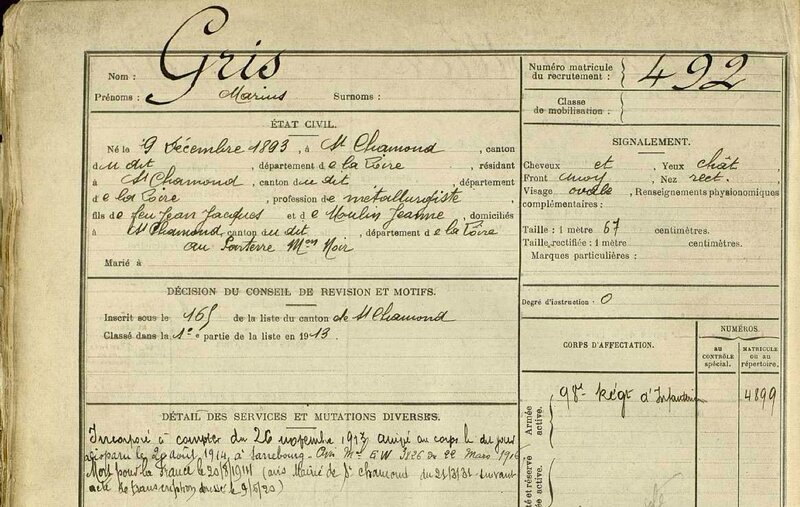 Nom : Gris
Prénoms : Marius Surnoms :
ÉTAT CIVIL.
Né le 9 Décembre 1893, à St Chamond, canton
du dit, département de la Loire, résidant
à St Chamond, canton du dit, département
de la Loire, profession de métallurgiste
fils de feu Jean Jacques et de Moulin Jeanne, domiciliés
à St Chamond, canton du dit, département de la Loire
au Parterre Mon Noir
Marié à
DÉCISION DU CONSEIL DE REVISION ET MOTIFS.
Inscrit sous le 165 de la liste du canton de St Chamond
Classé dans la 1e partie de la liste en 1913.
DÉTAIL DES SERVICES ET MUTATIONS DIVERSES.
Incorporé à compter du 26 novembre 1913 arrivé au corps le dit jour
disparu le 20 août 1914, à Sarrebourg. Avis Mel 22 Mars 1916
Mort pour la France le 20/8/1914 (avis Mairie de St Chamond du 21/3/31 suivant
acte de transcription dressé le 9/6/20)
Numéro matricule
du recrutement : 492
Classe
de mobilisation :
SIGNALEMENT.
Cheveux et Yeux chât
Front moy Nez rect.
Visage ovale, Renseignements physionomiques
complémentaires :
Taille : 1 mètre 67 centimètres.
Taille rectifiée : 1 mètre centimètres.
Marques particulières :
Degré d'instruction : 0
CORPS D'AFFECTATION.
NUMÉROS.
AU
CONTRÔLE
spécial.
MATRICULE
OU AU
répertoire.
Armée
active.
98e Régt d'Infanterie 4899
té et réserve
ée active.